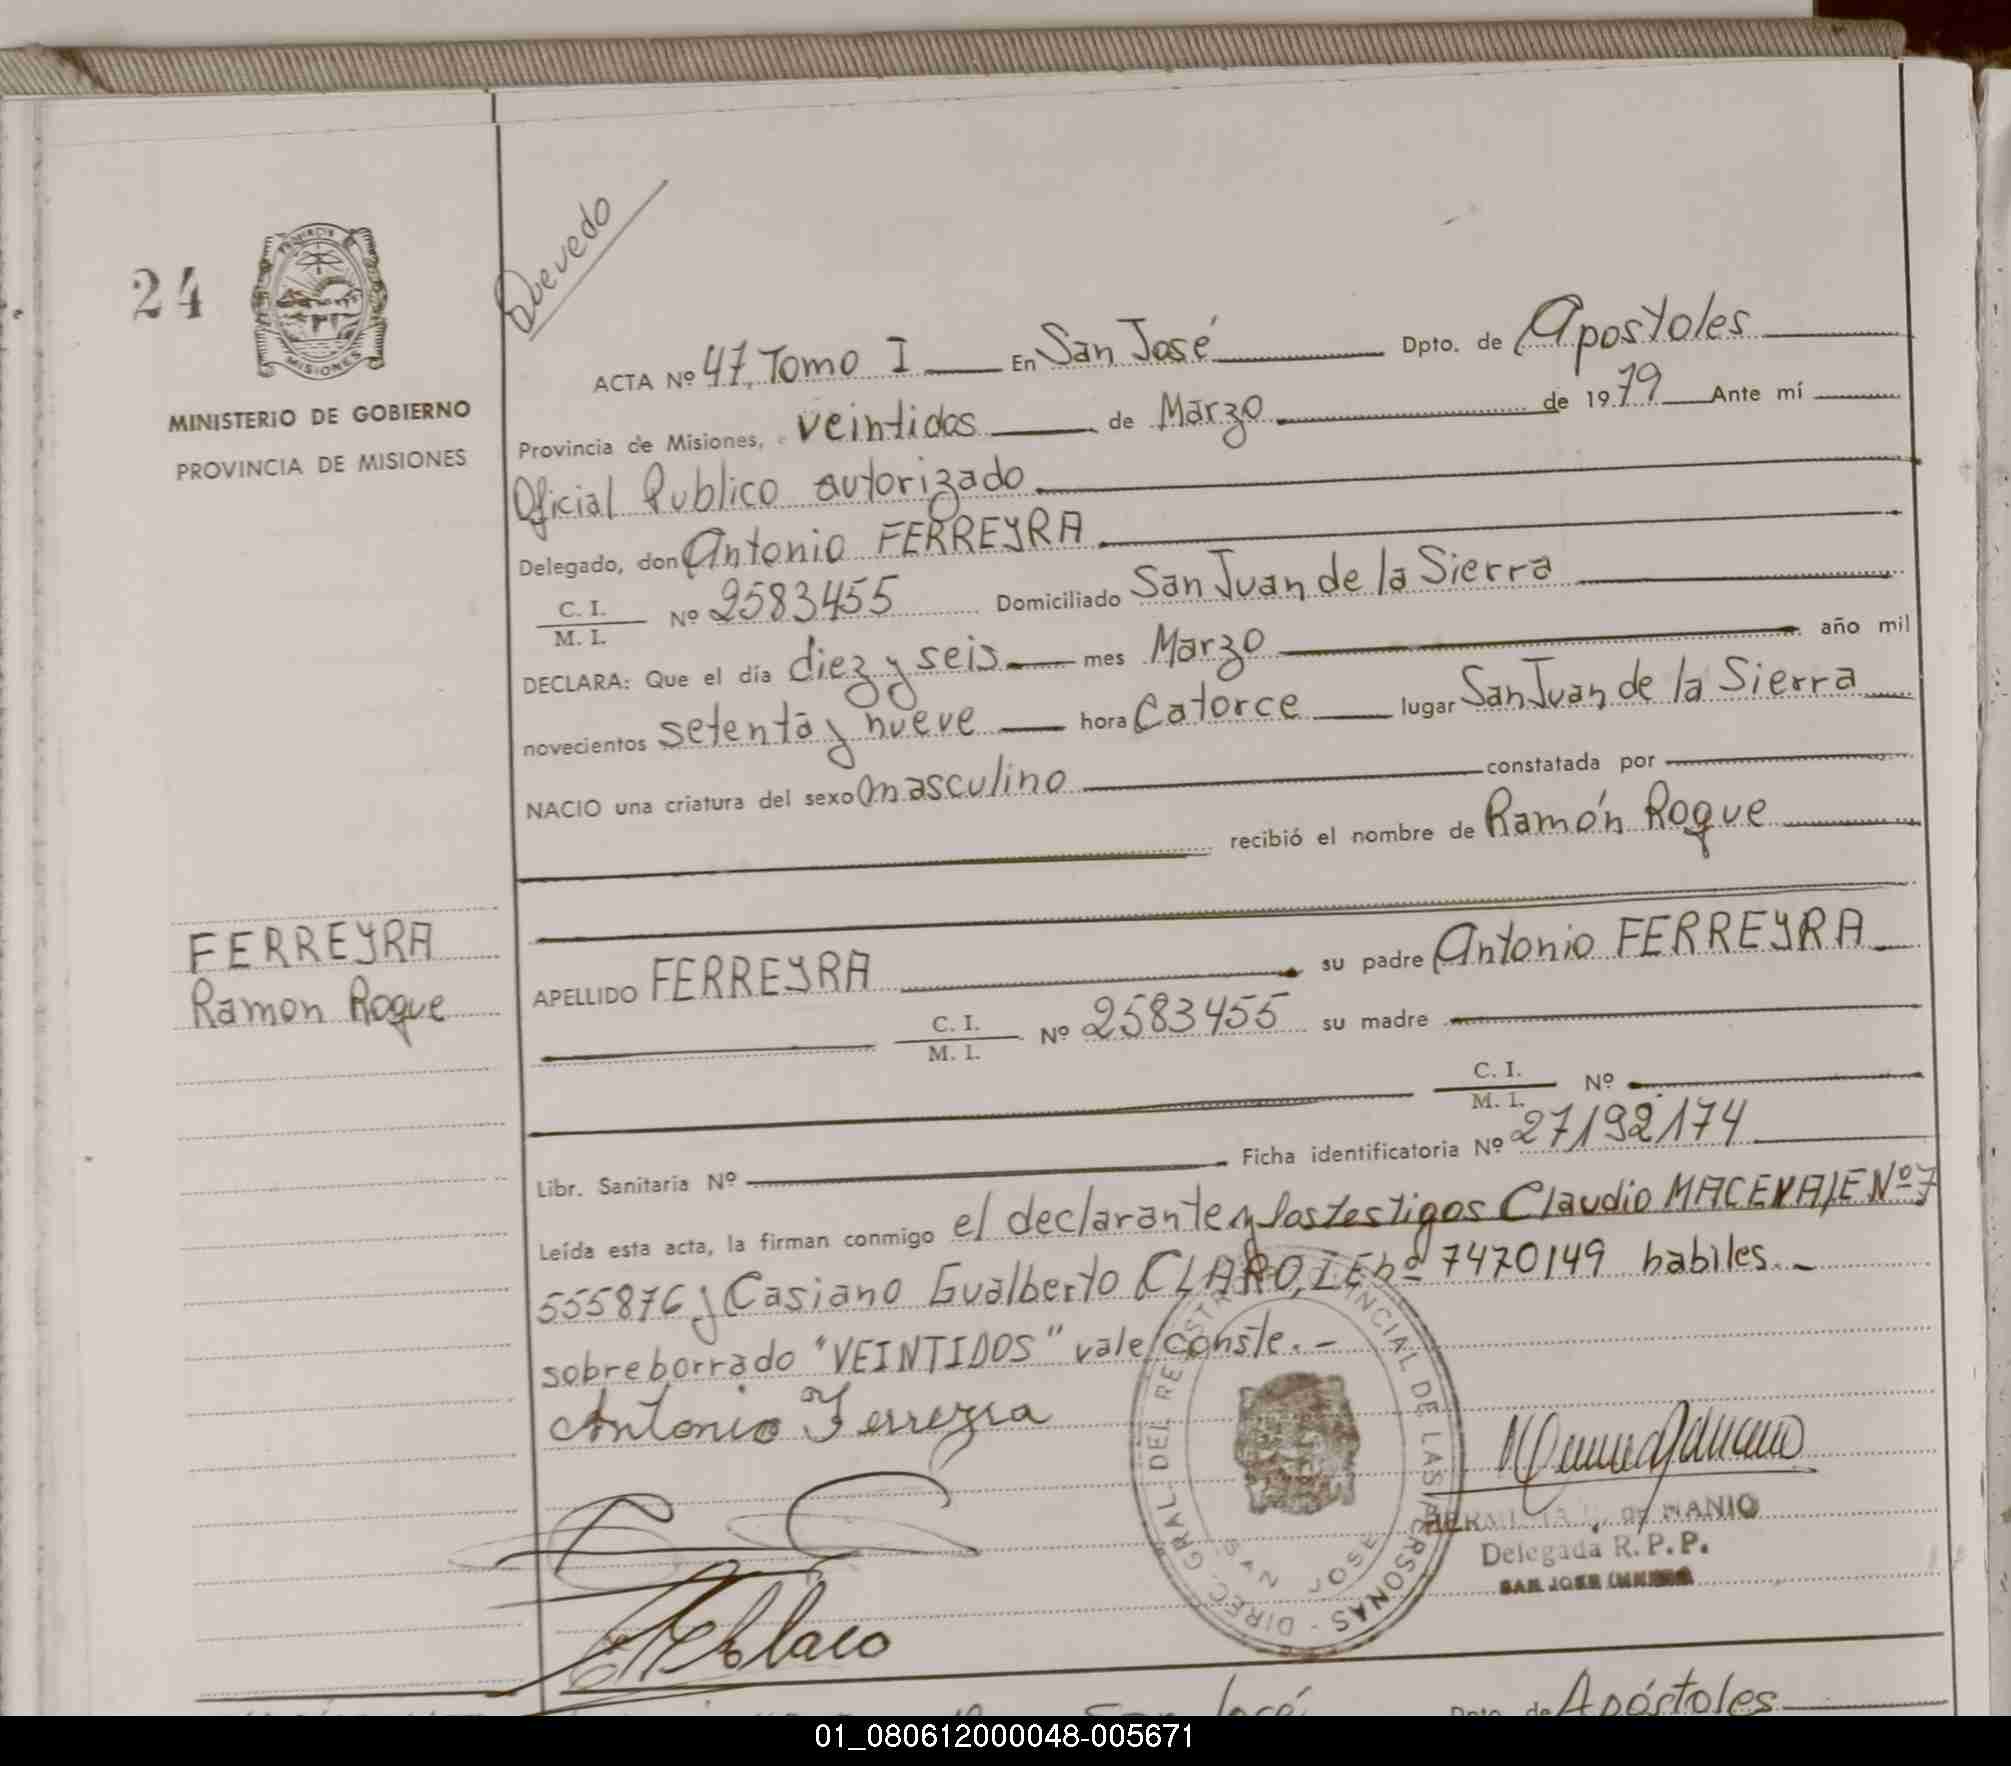 24
PROVINCIA
MISIONES
MINISTERIO DE GOBIERNO
PROVINCIA DE MISIONES
Quevedo
ACTA Nº 47, Tomo I En San José Dpto. de Apostoles
Provincia de Misiones, a veintidos de Marzo de 1979 Ante mí
Oficial Publico autorizado
Delegado, don Antonio FERREYRA
C. I. / M. I. Nº 2583455 Domiciliado San Juan de la Sierra
DECLARA: Que el día diez y seis mes Marzo año mil
novecientos setenta y nueve hora Catorce lugar San Juan de la Sierra
NACIO una criatura del sexo masculino constatada por
recibió el nombre de Ramón Roque
FERREYRA
Ramon Roque
APELLIDO FERREYRA su padre Antonio FERREYRA
C. I. / M. I. Nº 2583455 su madre
C. I. / M. I. Nº
Libr. Sanitaria Nº Ficha identificatoria Nº 27192174
Leída esta acta, la firman conmigo el declarante y los testigos Claudio LE Nº 7
555876 y Casiano Gualberto CLARO, LE nº 7470149 habiles.-
sobreborrado "VEINTIDOS" vale/conste.-
Antonio Ferreyra
DIREC. GRAL. DEL REGISTRO PROVINCIAL DE LAS PERSONAS - SAN JOSE
DE MANIO
Delegada R. P. P.
SAN JOSE
San José Dpto. de Apóstoles
01_080612000048-005671